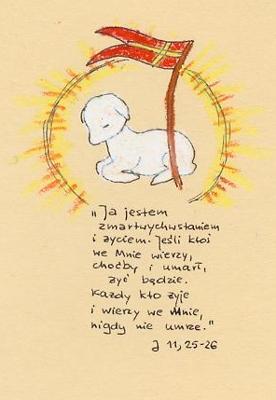 „Ja jestem
zmartwychwstaniem
i życiem. Jeśli ktoś
we Mnie wierzy,
choćby i umarł,
żyć będzie.
Każdy kto żyje
i wierzy we Mnie,
nigdy nie umrze."
J 11, 25-26